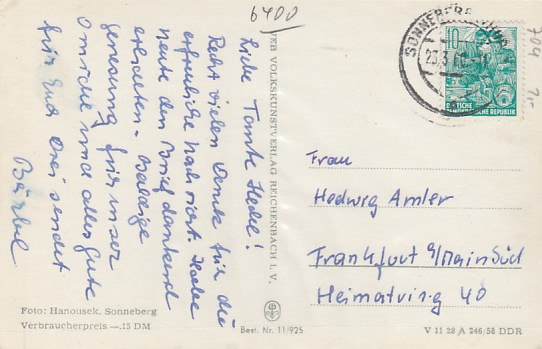 6400
Liebe Tante Hedel!
Recht vielen Dank für die
erfreuliche Nachricht. Habe
heute den Brief dankend
erhalten. Baldige
Genesung für unser
Omichen und alles Gute
für Euch Drei sendet
Bärbel
VEB VOLKSKUNSTVERLAG REICHENBACH I. V.
SONNEBERG
23.3.
10
DEUTSCHE
DEMOKRATISCHE REPUBLIK
704
7,-
Frau
Hedwig Amler
Frankfurt a/Main Süd
Heimatring 40
Foto: Hanousek, Sonneberg
Verbraucherpreis —.15 DM
Best. Nr. 11/925
V 11 28 A 246/58 DDR